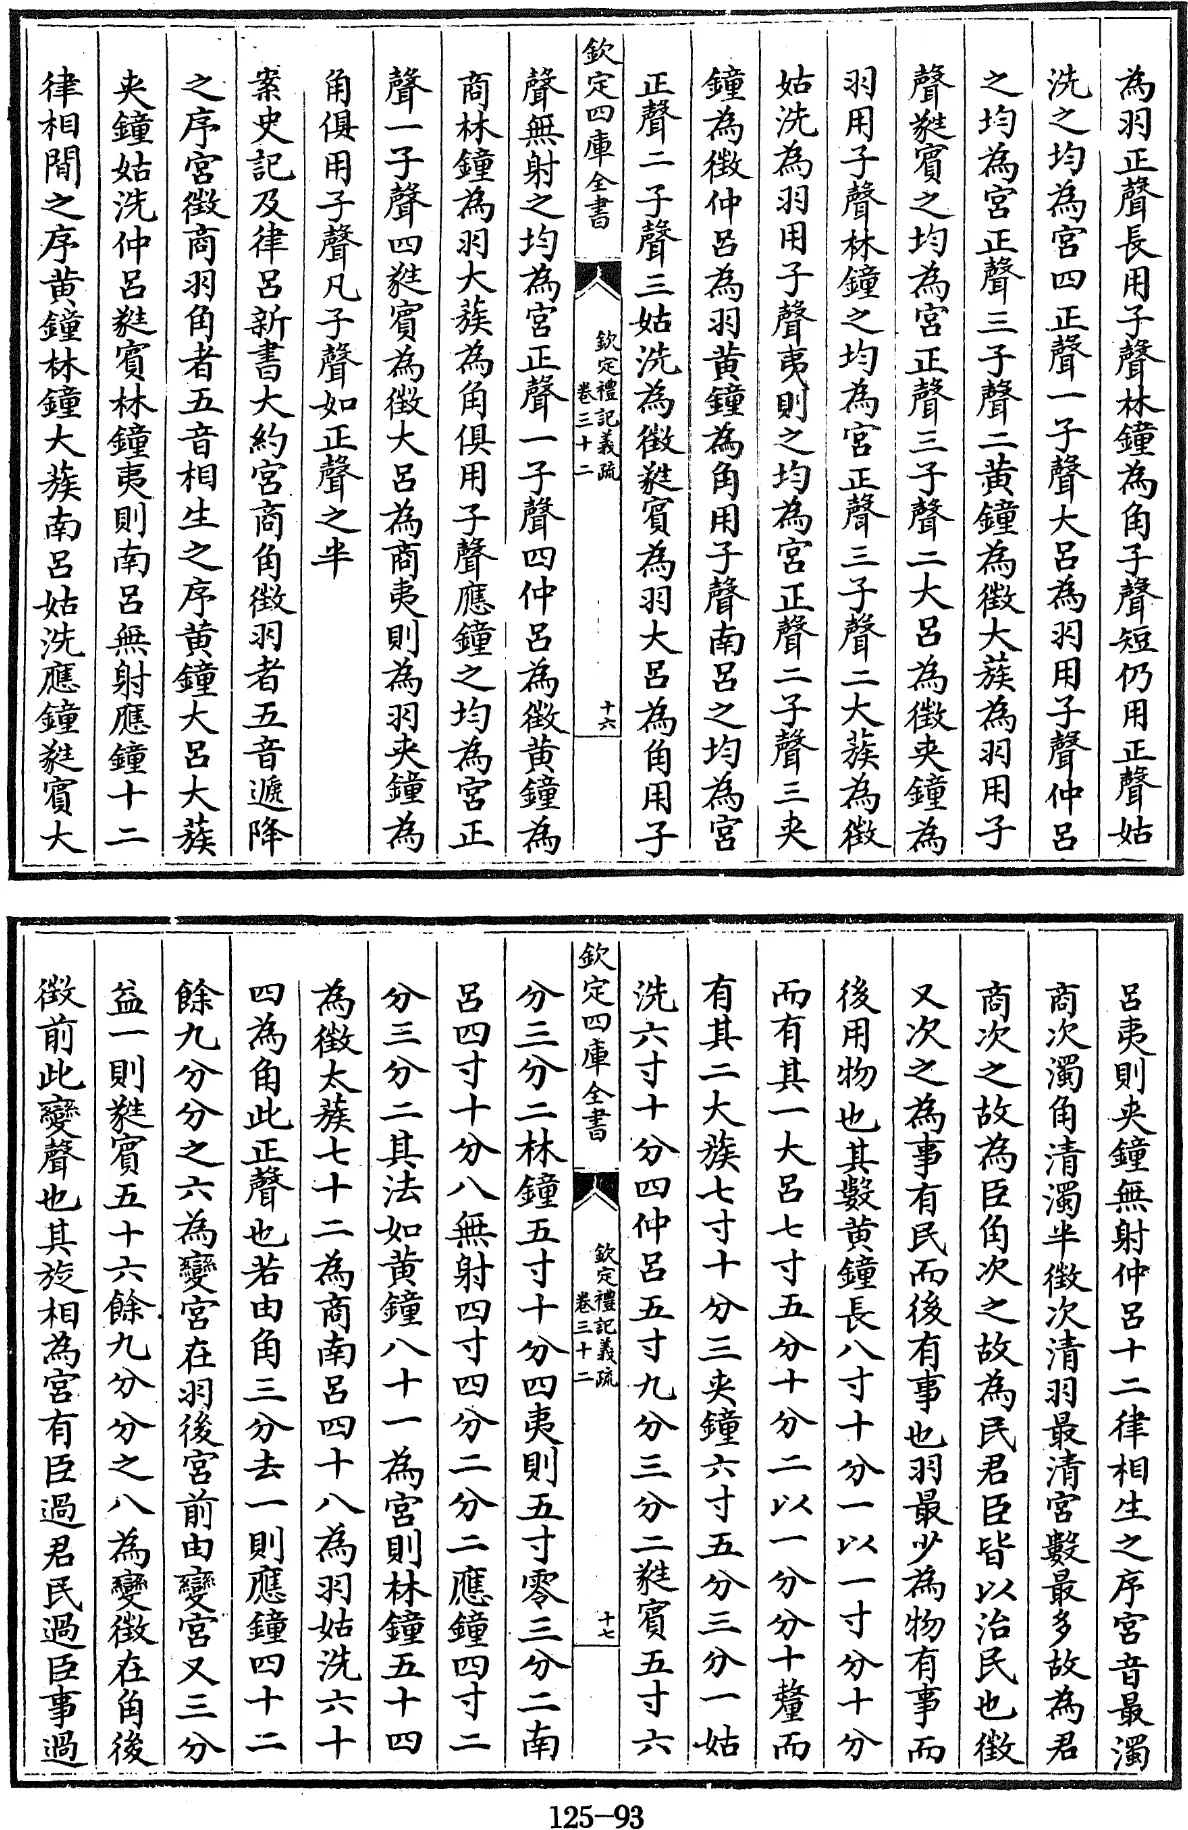 為羽正聲長用子聲林鐘為角子聲短仍用正聲姑
洗之均為宮四正聲一子聲大呂為羽用子聲仲呂
之均為宮正聲三子聲二黃鐘為徵大蔟為羽用子
聲蕤賓之均為宮正聲三子聲二大呂為徵夾鐘為
羽用子聲林鐘之均為宮正聲三子聲二大蔟為徵
姑洗為羽用子聲夷則之均為宮正聲二子聲三夾
鐘為徵仲呂為羽黃鐘為角用子聲南呂之均為宮
正聲二子聲三姑洗為徵蕤賓為羽大呂為角用子
欽定四庫全書
欽定禮記義疏
卷三十二
十六
聲無射之均為宮正聲一子聲四仲呂為徵黃鐘為
商林鐘為羽大蔟為角俱用子聲應鐘之均為宮正
聲一子聲四蕤賓為徵大呂為商夷則為羽夾鐘為
角俱用子聲凡子聲如正聲之半
案史記及律呂新書大約宮商角徵羽者五音遞降
之序宮徵商羽角者五音相生之序黃鐘大呂大蔟
夾鐘姑洗仲呂蕤賓林鐘夷則南呂無射應鐘十二
律相間之序黃鐘林鐘大蔟南呂姑洗應鐘蕤賓大
呂夷則夾鐘無射仲呂十二律相生之序宮音最濁
商次濁角清濁半徵次清羽最清宮數最多故為君
商次之故為臣角次之故為民君臣皆以治民也徵
又次之為事有民而後有事也羽最少為物有事而
後用物也其數黃鐘長八寸十分一以一寸分十分
而有其一大呂七寸五分十分二以一分分十釐而
有其二大蔟七寸十分三夾鐘六寸五分三分一姑
洗六寸十分四仲呂五寸九分三分二蕤賓五寸六
欽定四庫全書
欽定禮記義疏
卷三十二
十七
分三分二林鐘五寸十分四夷則五寸零三分二南
呂四寸十分八無射四寸四分二分二應鐘四寸二
分三分二其法如黃鐘八十一為宮則林鐘五十四
為徵太蔟七十二為商南呂四十八為羽姑洗六十
四為角此正聲也若由角三分去一則應鐘四十二
餘九分分之六為變宮在羽後宮前由變宮又三分
益一則蕤賓五十六餘九分分之八為變徵在角後
徵前此變聲也其旋相為宮有臣過君民過臣事過
125-93